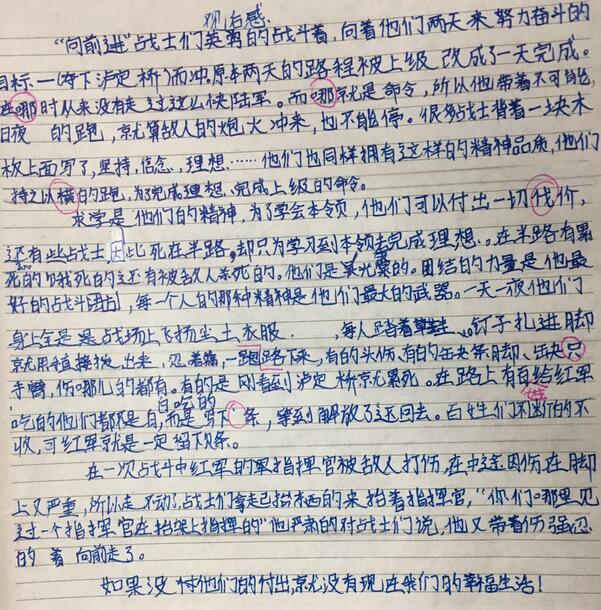 观后感
“向前进”战士们英勇的战斗着,向着他们两天来努力奋斗的
目标一(夺下泸定桥)而冲.原本两天的路程被上级改成了一天完成。
在哪时从来没有走过这么快陆军。而哪就是命令,所以他带着不可能
日夜的跑,就算敌人的炮火冲来,也不能停。很多战士背着一块木
板上面写了,坚持,信念,理想……他们也同样拥有这样的精神品质,他们
持之以横的跑,为了完成理想、完成上级的命令。
求学是他们的精神,为了学会本领,他们可以付出一切代价,
还有些战士因此死在半路,却只为学习到本领去完成理想。在半路有累
死的饿死的还有被敌人杀死的。他们是最光荣的。团结的力量是他最
好的战斗团,每一个人的那种精神是他们最大的武器。一天一夜他们
身上全是战场上飞扬尘土衣服 每人踏着草鞋、钉子扎进脚
就用手直接拔出来,忍着痛,一跑路下来,有的头伤、有的缺条脚、缺只
手臂,伤哪儿的都有。有的是刚看到泸定桥就累死。在路上有百姓给红军
吃的他们都不是白吃的,而是写下条,等到解放了还回去。百姓们不断的不
收,可红军就是一定留下条。
在一次战斗中红军的军指挥官被敌人打伤,在中途因伤在脚
上又严重,所以走不动了,战士们拿走已抬东西的来抬着指挥官,“你们哪里见
过一个指挥官在抬架上指挥的”他严肃的对战士们说,他又带着伤强忍
的着向前走了。
如果没有他们的付出,就没有现在我们的幸福生活!